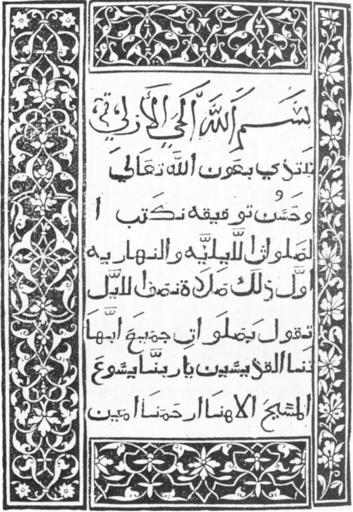 بسم الله الحي الازلي
نبتدي بعون الله تعالى
وحسن توفيقه نكتب ا
لصلوات الليليه والنهاريه
اول ذلك صلاة نصف الليل
تقول بصلواتي جميع ابها
تنا القديسين يا ربنا يسوع
المسيح الاهنا ارحمنا امين